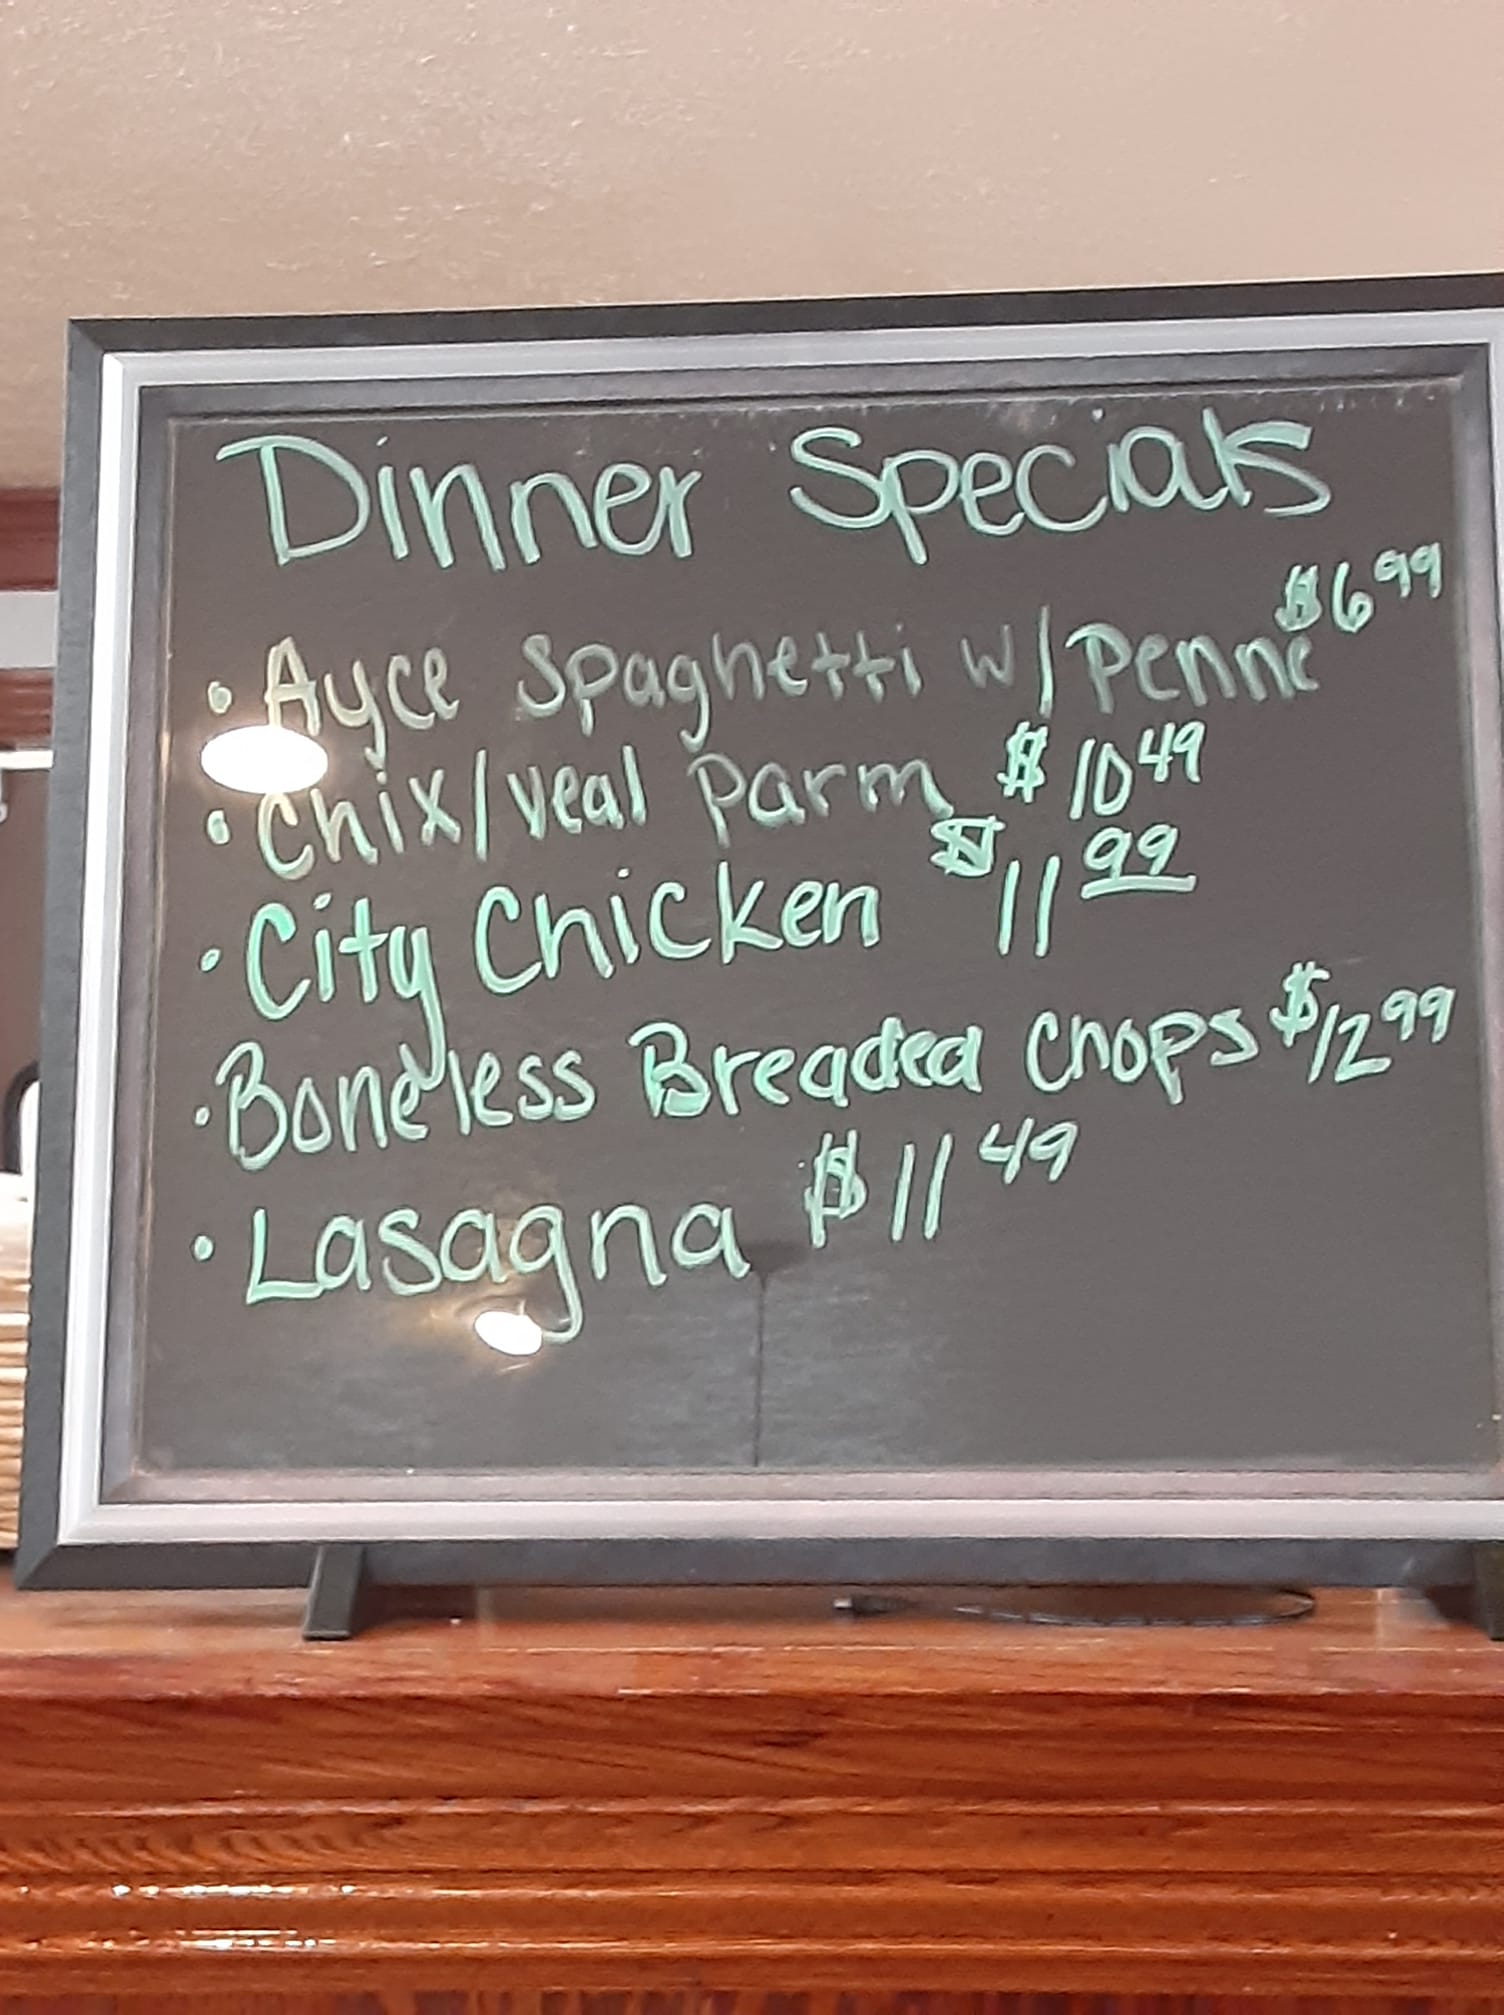 Dinner Specials
• Ayce Spaghetti w/Penne $6 99
• Chix/veal parm $10 49
• City Chicken $11 99
• Boneless Breaded Chops $12 99
• Lasagna $11 49